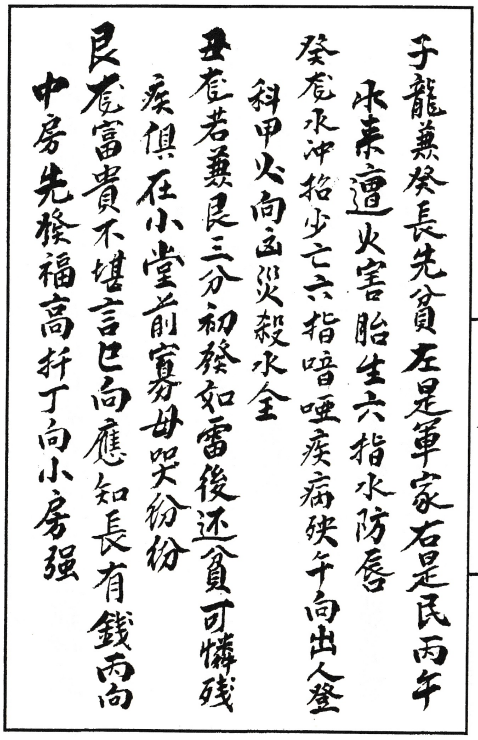 子龍兼癸長先貧左是軍家右是民丙午
水来遭火害胎生六指水防唇
癸龙水冲招少亡六指喑哑疾病殃午向出人登
科甲火向凶災殺水全
丑龙若兼艮三分初發如雷後还貧可憐残
疾俱在小堂前寡母哭纷纷
艮龙富貴不堪言巳向應知長有錢丙向
中房先發福高扦丁向小房强